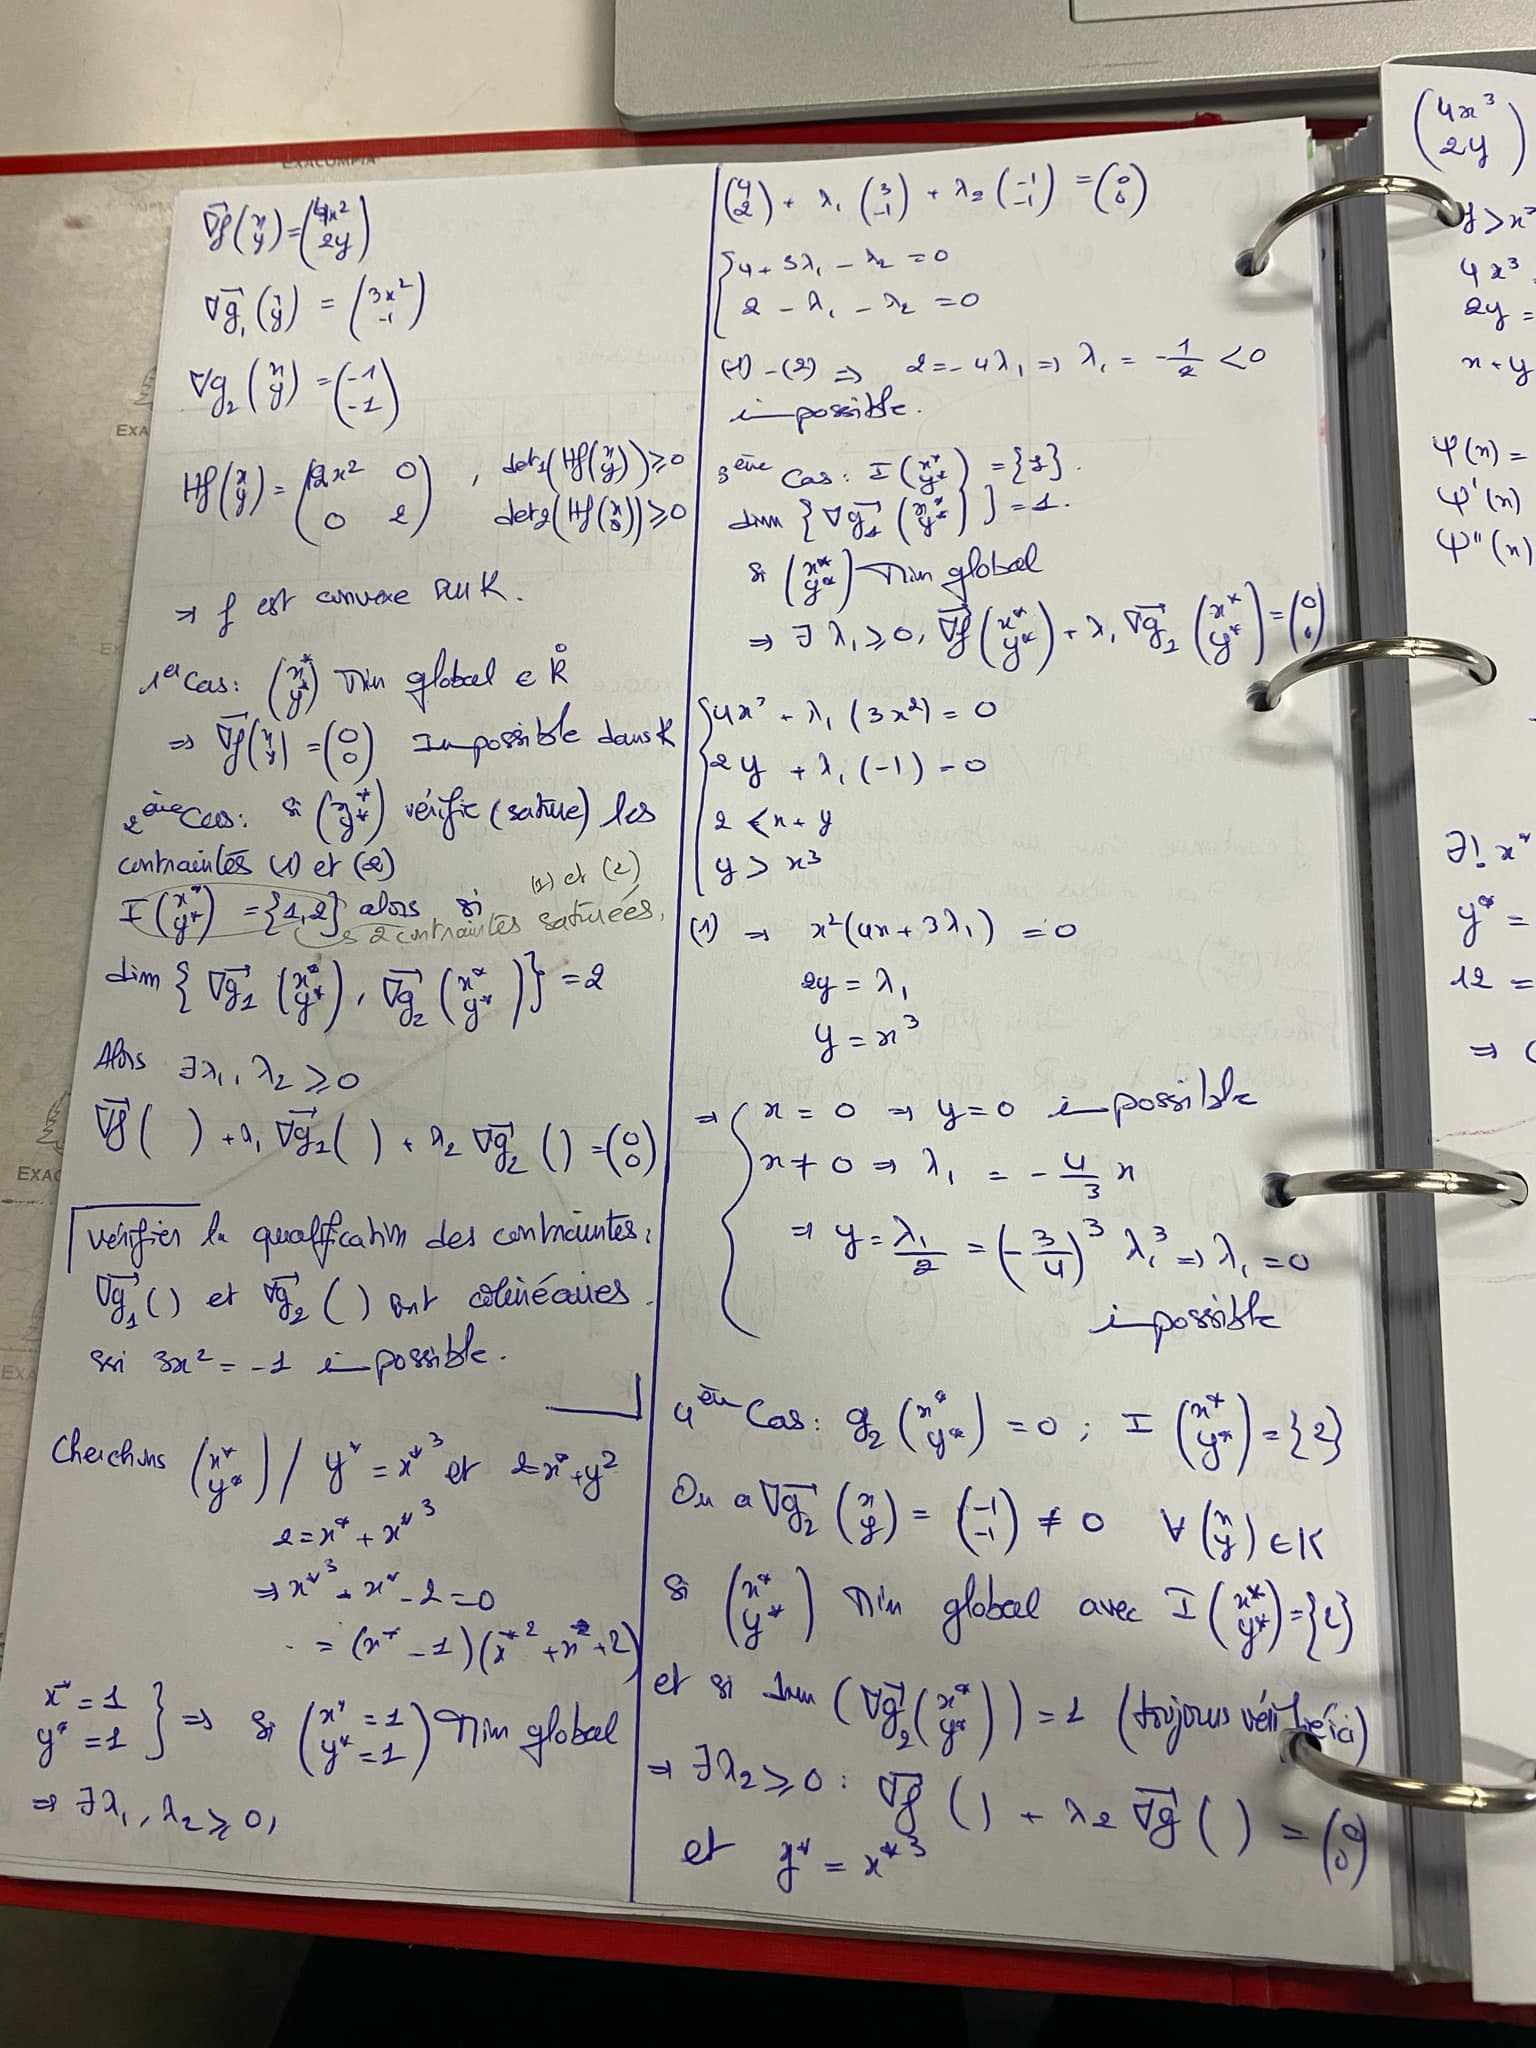 EXACOMPTA
∇f(x y) = (4x² 2y)
∇g₁(x y) = (3x² -1)
∇g₂(x y) = (-1 -1)
Hf(x y) = (12x² 0 / 0 2), det₁(Hf(x y)) ≥ 0
det₂(Hf(x y)) ≥ 0
⇒ f est convexe sur K.
1er Cas: (x* y*) Min global ∈ K̊
⇒ ∇f(x y) = (0 0) Impossible dans K
2ème Cas: si (x* y*) vérifie (sature) les
contraintes (1) et (2)
I(x* y*) = {1,2} alors si
(1) et (2)
↳ 2 contraintes saturées.
dim {∇g₁(x* y*), ∇g₂(x* y*)} = 2
Alors ∃λ₁, λ₂ ≥ 0
∇f( ) + λ₁ ∇g₁( ) + λ₂ ∇g₂( ) = (0 0)
vérifier la qualification des contraintes:
∇g₁( ) et ∇g₂( ) sont colinéaires
ssi 3x² = -1 impossible.
Cherchons (x* y*) / y* = x*³ et 2 = x* + y²
2 = x* + x*³
⇒ x*³ + x* - 2 = 0
= (x* - 1)(x*² + x* + 2)
x* = 1
y* = 1 } ⇒ si (x* = 1 y* = 1) Min global
⇒ ∃λ₁, λ₂ ≥ 0,
(4 2) + λ₁ (3 -1) + λ₂ (-1 -1) = (0 0)
{ 4 + 3λ₁ - λ₂ = 0
2 - λ₁ - λ₂ = 0
(1) - (2) ⇒ 2 = -4λ₁ ⇒ λ₁ = -1/2 < 0
impossible.
3ème Cas: I(x* y*) = {1}.
dim {∇g₁(x* y*)} = 1.
si (x* y*) Min global
⇒ ∃ λ₁ ≥ 0, ∇f(x* y*) + λ₁ ∇g₂(x* y*) = (0 0)
{ 4x³ + λ₁(3x²) = 0
2y + λ₁(-1) = 0
2 < x + y
y > x³
(1) ⇒ x²(4x + 3λ₁) = 0
2y = λ₁
y = x³
⇒ { x = 0 ⇒ y = 0 impossible
x ≠ 0 ⇒ λ₁ = -4/3 x
⇒ y = λ₁/2 = (-3/4)³ λ₁³ ⇒ λ₁ = 0
impossible
4ème Cas: g₂(x* y*) = 0; I(x* y*) = {2}
On a ∇g₂(x y) = (-1 -1) ≠ 0 ∀(x y) ∈ K
si (x* y*) Min global avec I(x* y*) = {2}
et si dim (∇g₂(x* y*)) = 1 (toujours vérifié ici)
⇒ ∃λ₂ ≥ 0: ∇f( ) + λ₂ ∇g( ) = (0 0)
et y* = x*³
(4x³ 2y)
y > x³
4x³
2y =
x + y
φ(x) =
φ'(x)
φ''(x)
∃! x*
y* =
12 =
⇒